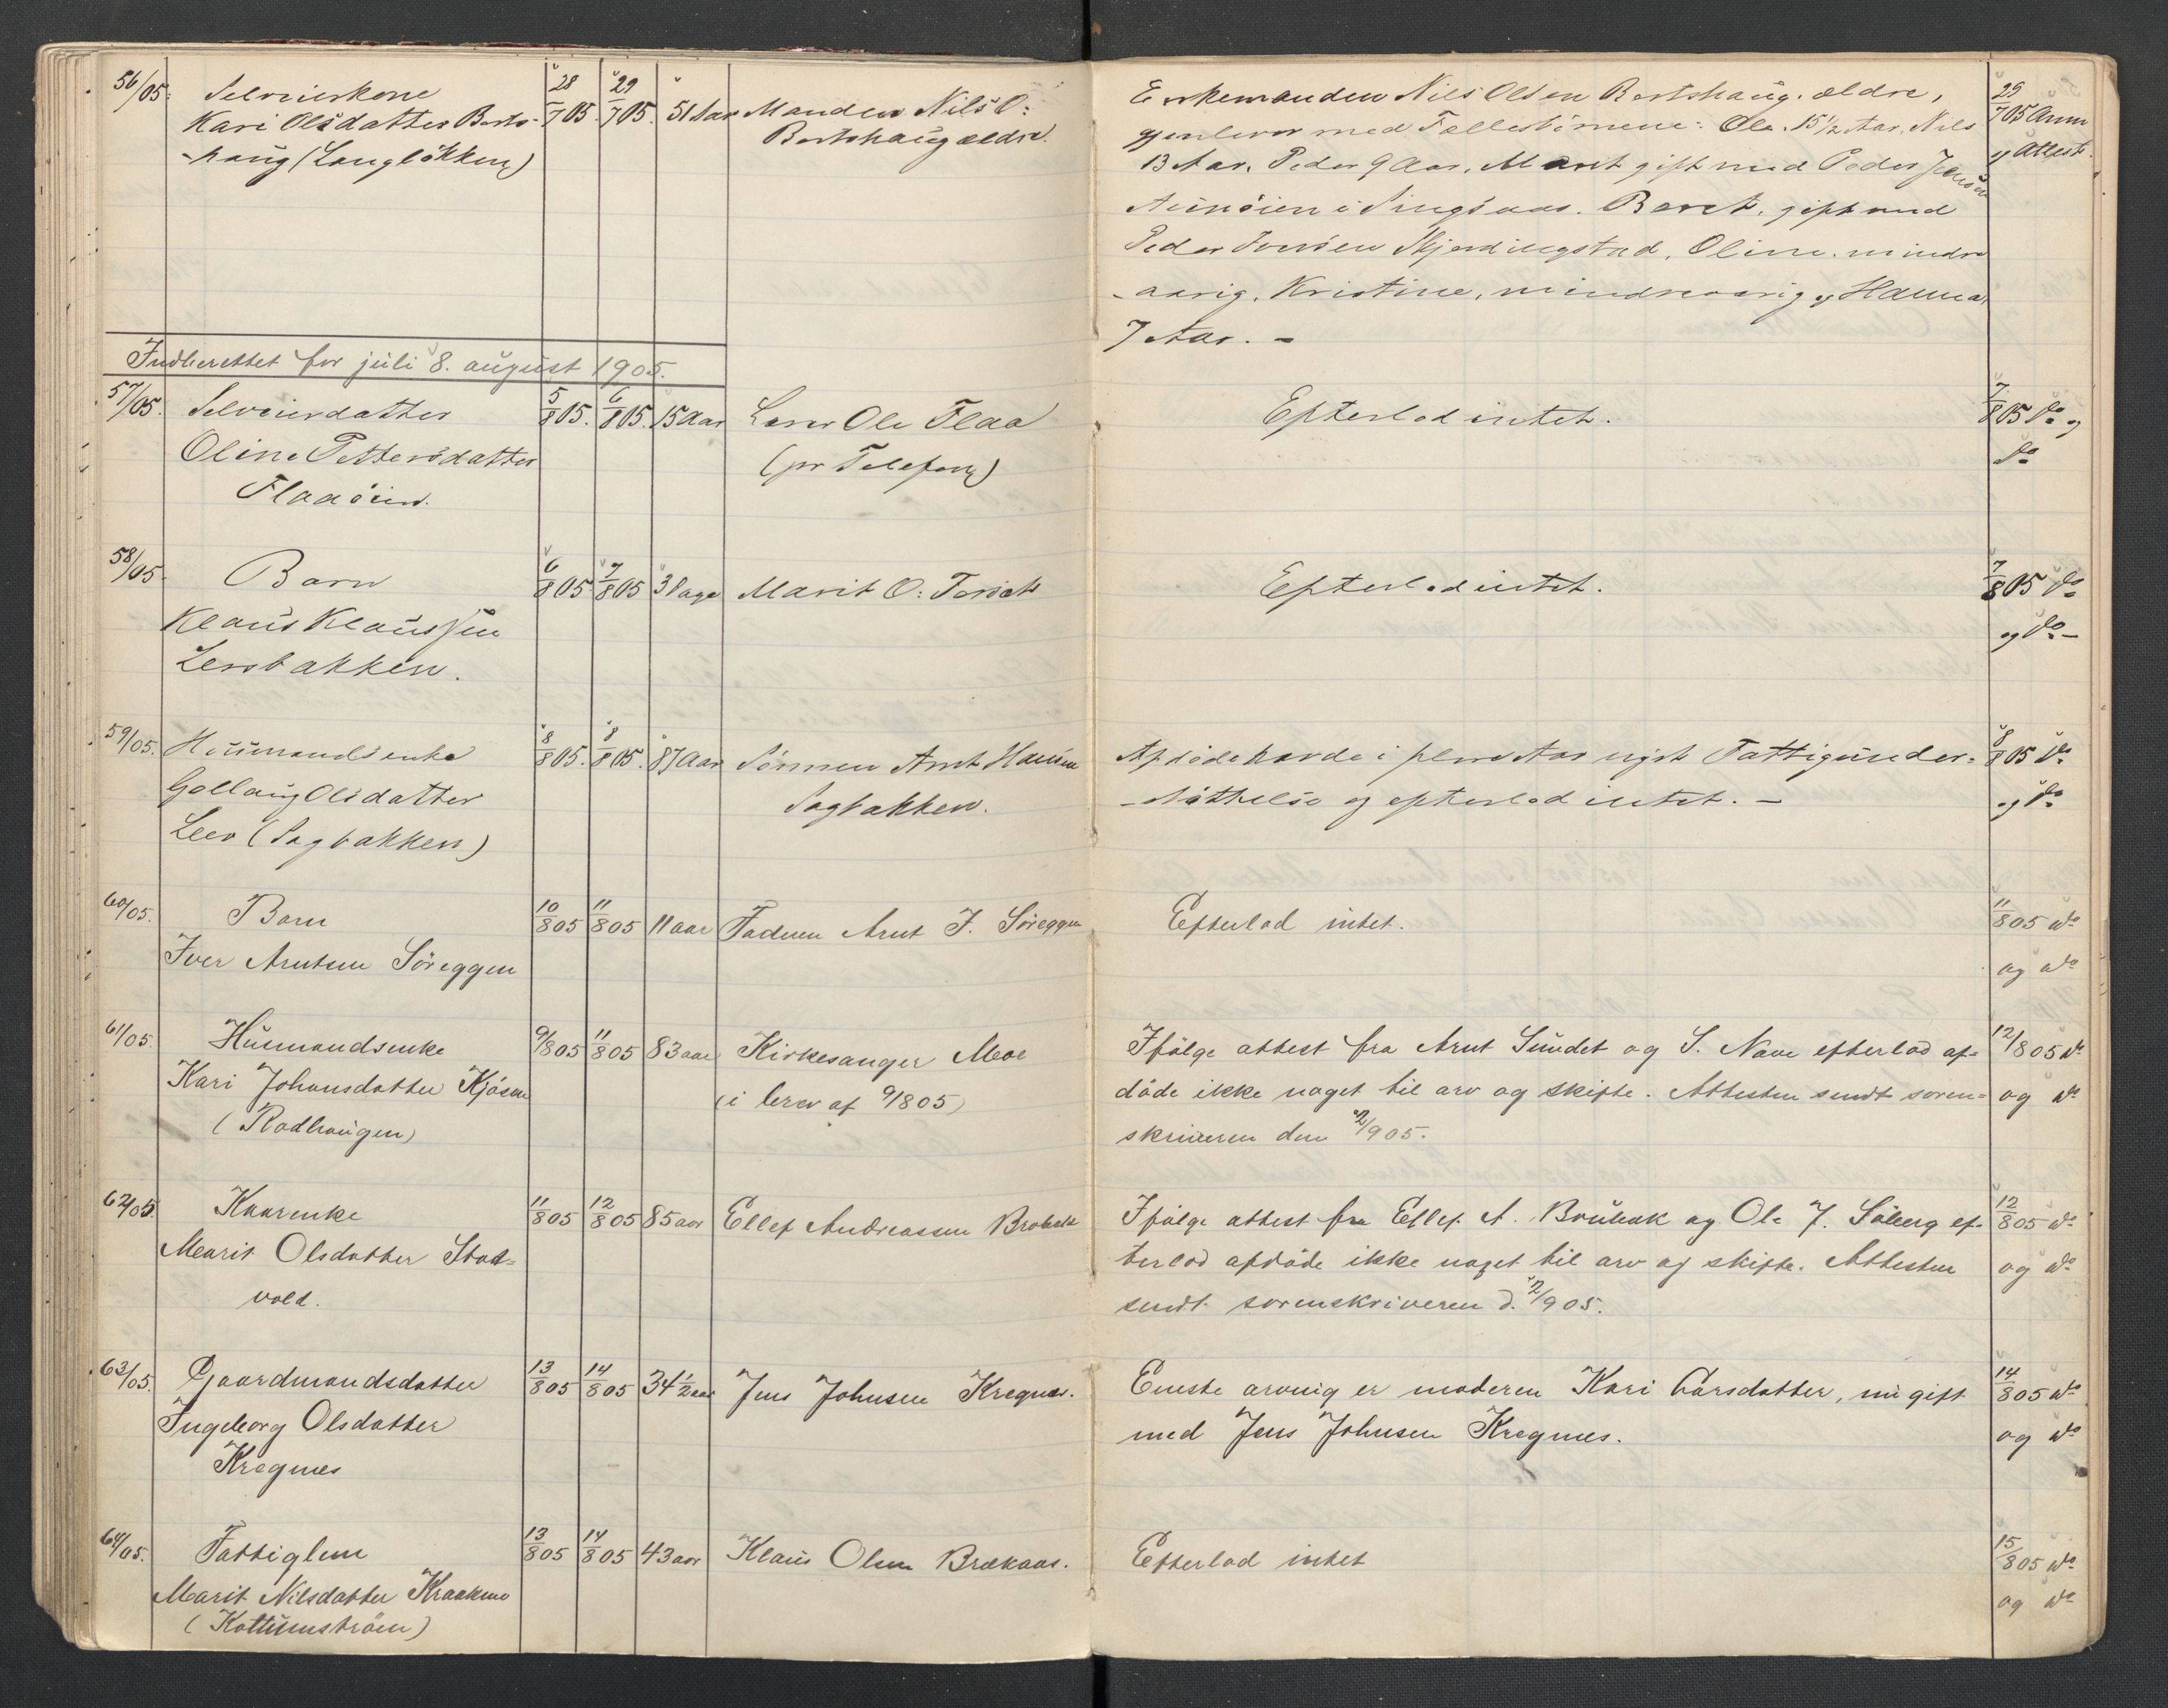 56/05. Selveierkone 28/7 05. 29/7 05. 51 Aar Manden Nils O: Enkemanden Nils Olsen Bertshaug. ældre, 29/7 05 Anm
Kari Olsdatter Berts- Bertshaug ældre. gjenlever med Fællesbörnene: Ole. 15 1/2 Aar, Nils og Attest.
-haug (Langlökken) 13 Aar. Peder 9 Aar, Marit gift med Peder Jensen
Aunöien i Singsaas. Beret, gift med
Peder Skjerdingstad, Oline. mindre
-aarig, Kristine, mindreaarig og Hanna
7 Aar. -
Indberettet for juli 8. august 1905.
57/05. Selveierdatter 5/8 05. 6/8 05. 15 Aar Ole Flaa Efterlod intet. 7/8 05 do og
Oline Pettersdatter (pr Telefon) do
Flaaöien.
58/05. Barn 6/8 05. 7/8 05 3 Dage Marit O: Efterlod intet. 7/8 05 do
Klaus Klaussen og do -
Leerbakken.
59/05. Husmandsenke 8/8 05. 8/8 05. 87 Aar Sönnen Arnt Hansen Afdöde havde i flere Aar nydt Fattigunder- 8/8 05 do
Gollaug Olsdatter Sagbakken. -stöttelse og efterlod intet. - og do
Leer (Sagbakken)
60/05. Barn 10/8 05 11/8 05 11 aar Faderen Arnt I. Söreggen Efterlod intet. 11/8 05 do
Iver Arntsen Söreggen og do
61/05. Husmandsenke 9/8 05 11/8 05 83 aar Kirkesanger Moe Ifölge attest fra Arnt Sundet og S. Nave efterlod af- 12/8 05 do
Kari Johansdatter Kjösen (i brev af 9/8 05) döde ikke noget til arv og skifte. Attesten sendt soren- og do
(Rodhaugen) skriveren den 2/9 05.
62/05. Kaarenke 11/8 05 12/8 05 85 aar Ellef Andreassen Ifölge attest fra Ellef A. og Ole J. Söberg ef- 12/8 05 do
Marit Olsdatter Stad- terlod afdöde ikke noget til arv og skifte. Attesten og do
vold. sendt sorenskriveren d. 2/9 05.
63/05. Gaardmandsdatter 13/8 05 14/8 05 34 1/2 aar Jens Johnsen Kregnes. Eneste arving er moderen Kari Larsdatter, nu gift 14/8 05 do
Ingeborg Olsdatter med Jens Johnsen Kregnes. og do
Kregnes
64/05. Fattiglem 13/8 05 14/8 05 43 aar Klaus Olsen Brækaas. Efterlod intet 15/8 05 do
Marit Nilsdatter Kraakmo og do
(Kottumströen)